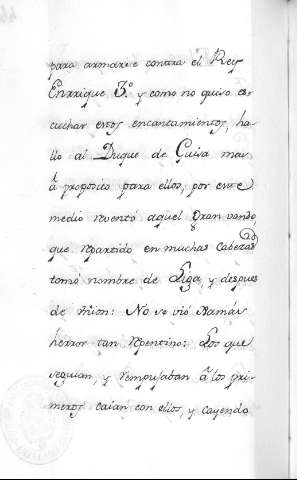 para armarse contra el Rey
Enrrique 3.º y como no quiso es-
cuchar estos encantamientos, ha-
llo al Duque de Guisa mas
à proposito para ellos, por este
medio rventó aquel Gran vando,
que rpartido en muchas Cabezas
tomó nombre de Liga, y despues
de Vnion: No se vió Jamás
herror tan rpentino: Los que
seguian, y rempujaban â los pri-
meros caian con ellos, y Cayendo